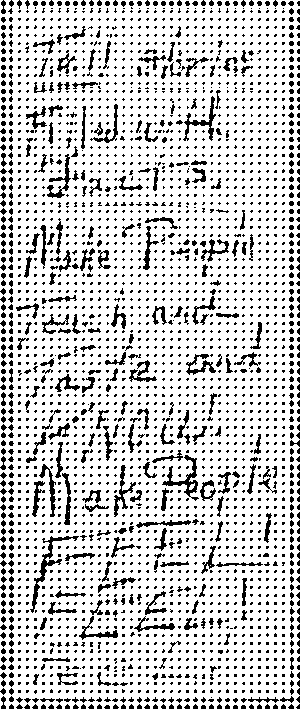 Tell stories
Filled with
facts.
Make People
Touch and
Taste and
KNOW.
Make People
FEEL!
FEEL!
FEEL!